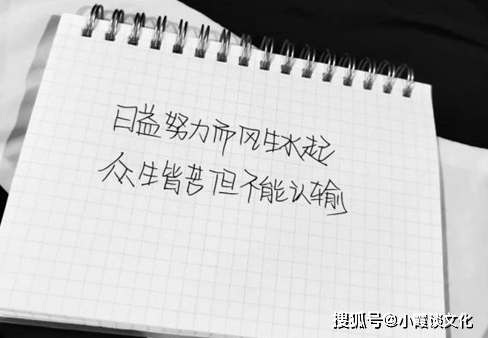 日益努力而风生水起
众生皆苦但不能认输
搜狐号@小霞谈文化